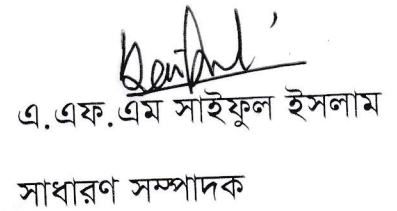 এ.এফ.এম সাইফুল ইসলাম
সাধারণ সম্পাদক